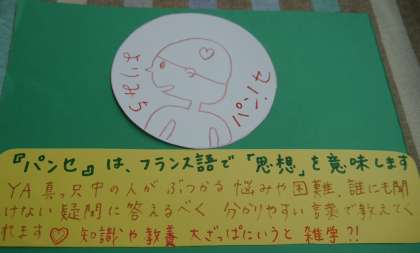 よりみち
パン!セ
『パンセ』は、フランス語で「思想」を意味します
YA真っ只中の人がぶつかる悩みや困難、誰にも聞
けない疑問に答えるべく 分かりやすい言葉で教えてく
れます♡ 知識や教養 大ざっぱにいうと 雑学?!